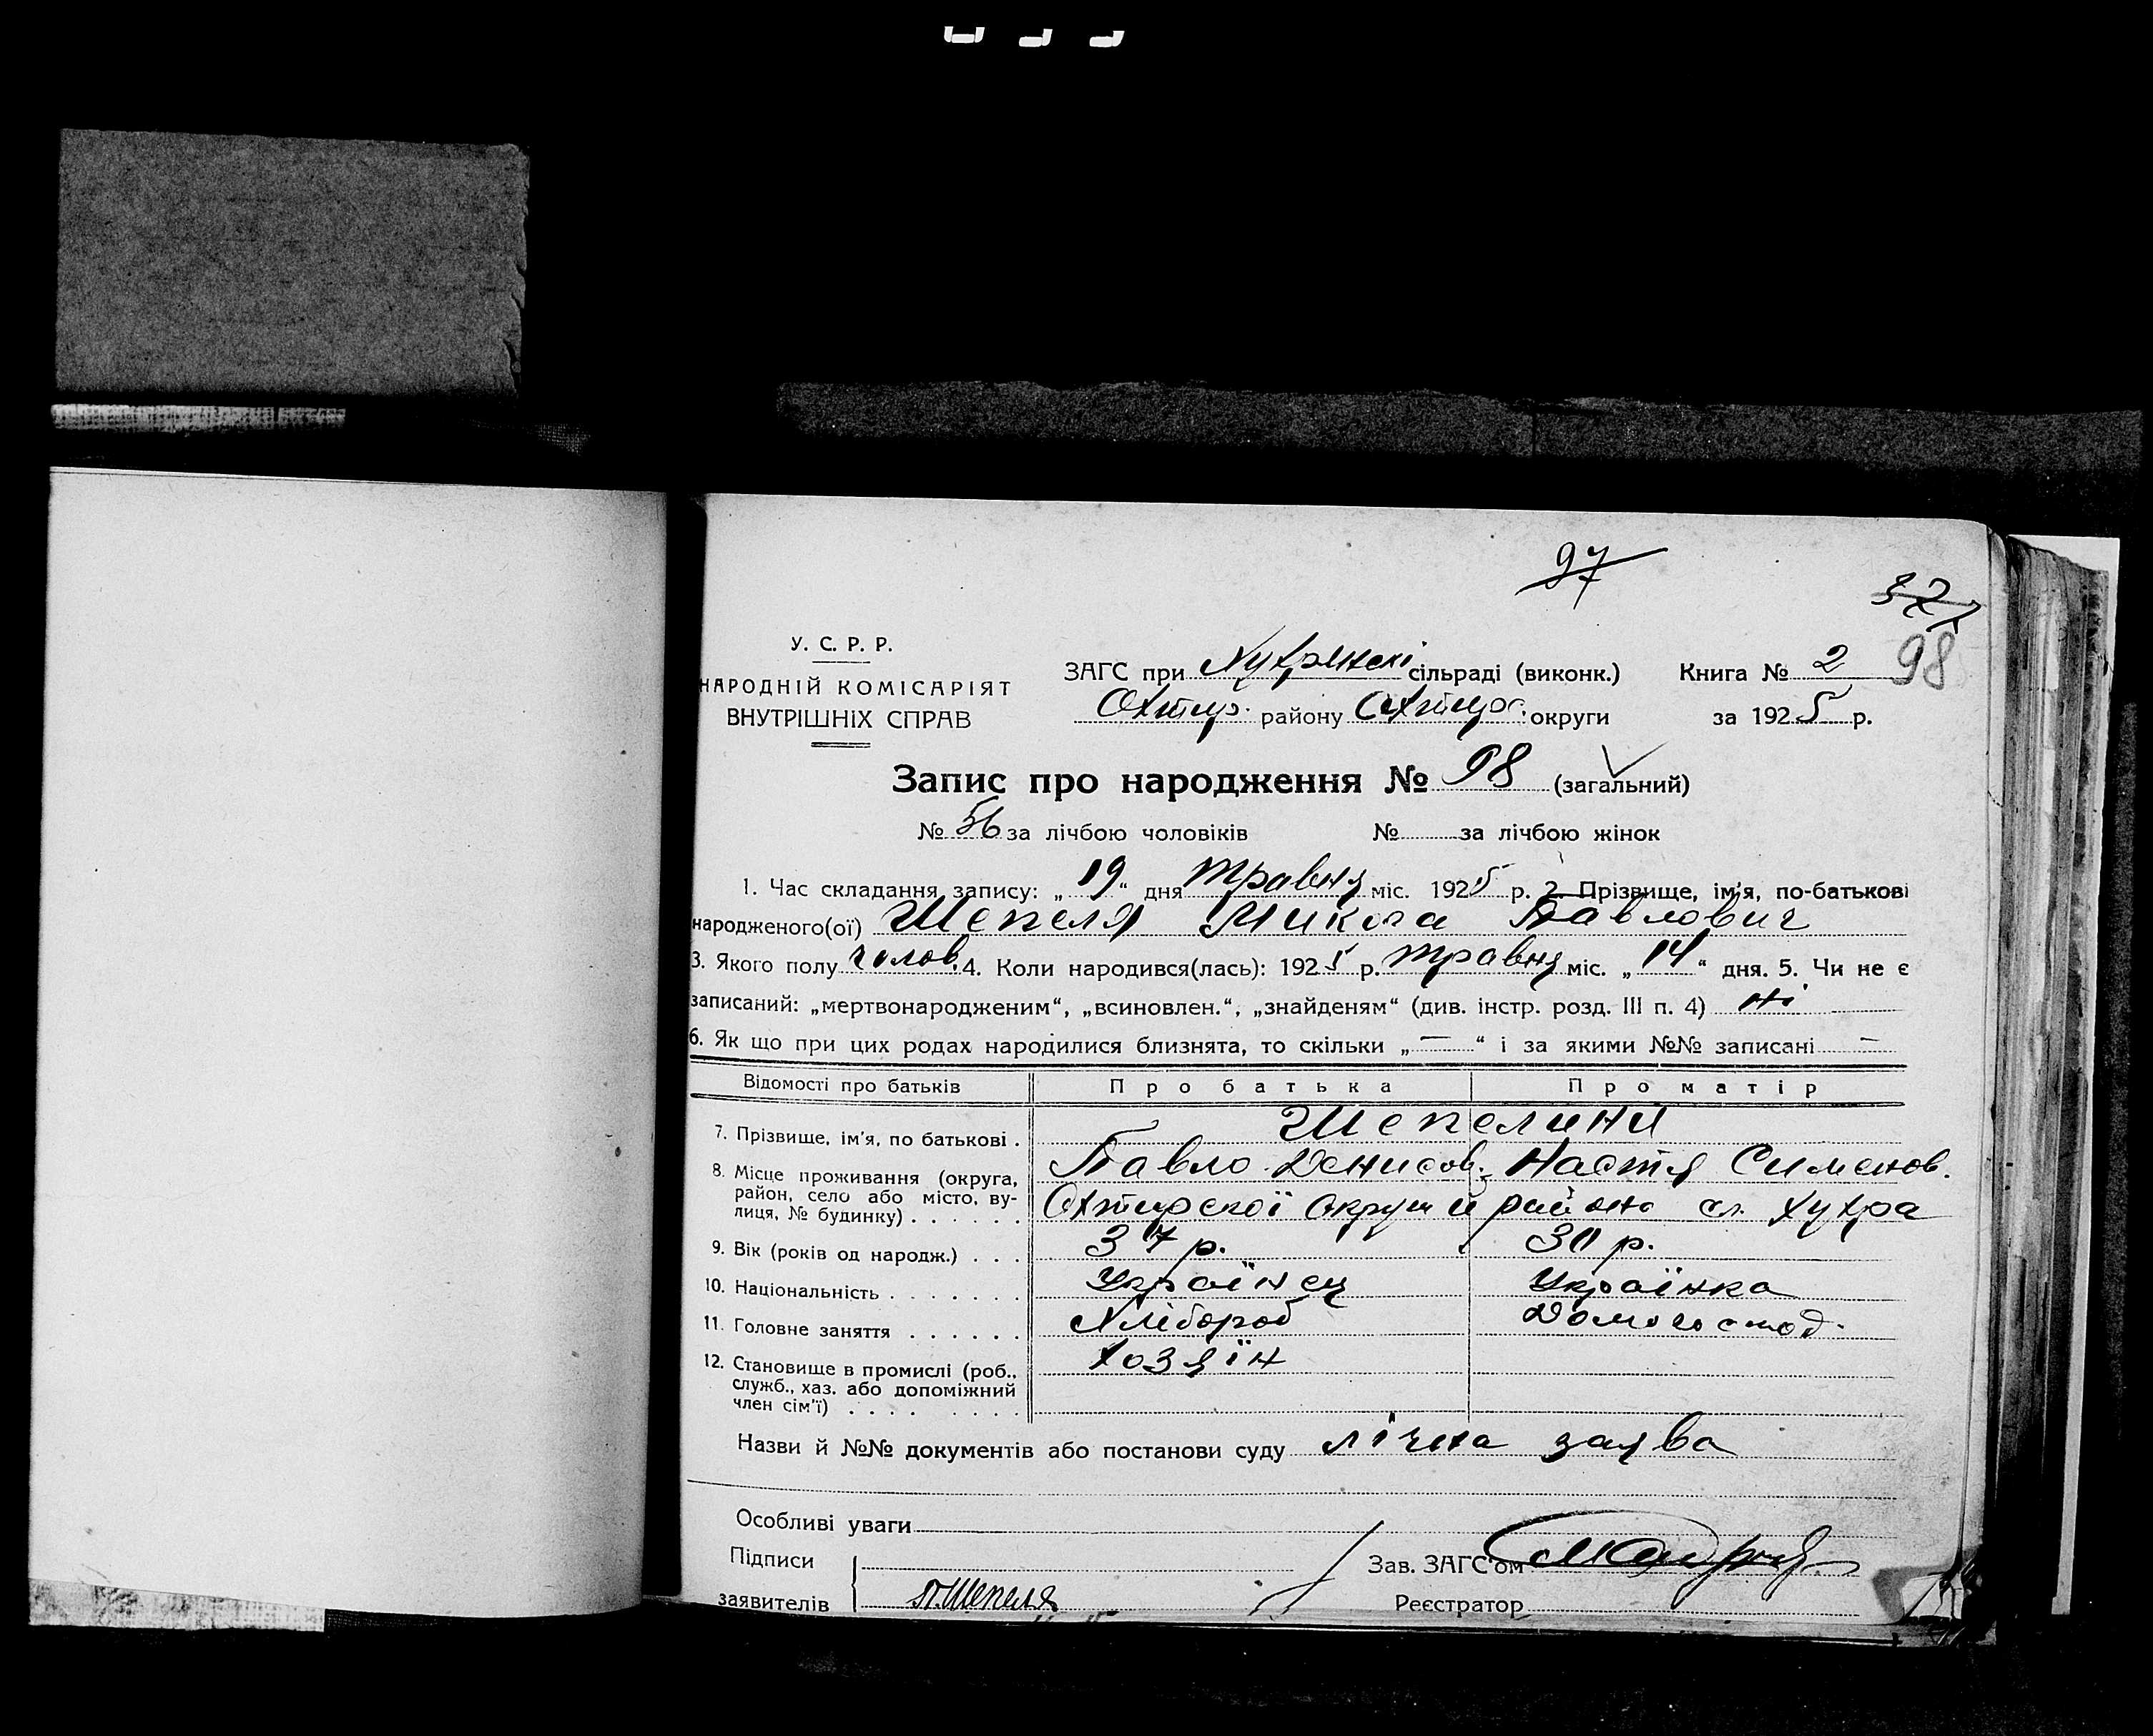 97
327
98
У. С. Р. Р.
НАРОДНІЙ КОМІСАРІЯТ
ВНУТРІШНІХ СПРАВ
ЗАГС при Хухрянскі сільраді (виконк.) Книга № 2
Охтир. району Охтир. округи за 1925 р.
Запис про народження № 98 (загальний)
№ 56 за лічбою чоловіків № за лічбою жінок
1. Час складання запису: „19“ дня травня міс. 1925 р. 2. Прізвище, ім'я, по-батькові
народженого(ої) Шепеля Микола Павлович
3. Якого полу чолов. 4. Коли народився(лась): 1925 р. травня міс. „14“ дня. 5. Чи не є
записаний: „мертвонародженим“, „всиновлен.“, „знайденям“ (див. інстр. розд. III п. 4) ні
6. Як що при цих родах народилися близнята, то скільки „—“ і за якими №№ записані —
Відомості про батьків Про батька Про матір
7. Прізвище, ім'я, по батькові . Шепелини
Павло Денисов. Настя Сименов.
8. Місце проживання (округа,
район, село або місто, ву-
лиця, № будинку) . . . . . . Охтирскої округи й району сл. Хухра
9. Вік (років од народж.) . . . 37 р. 30 р.
10. Національність . . . . . . . Українец Українка
11. Головне заняття . . . . . . Хлібороб Домогоспод.
12. Становище в промислі (роб.,
служб., хаз. або допоміжний
член сім'ї) . . . . . . . . Хозяїн
Назви й №№ документів або постанови суду лічна заява
Особливі уваги
Підписи
заявителів П. Шепеля
Зав. ЗАГС'ом
Реєстратор